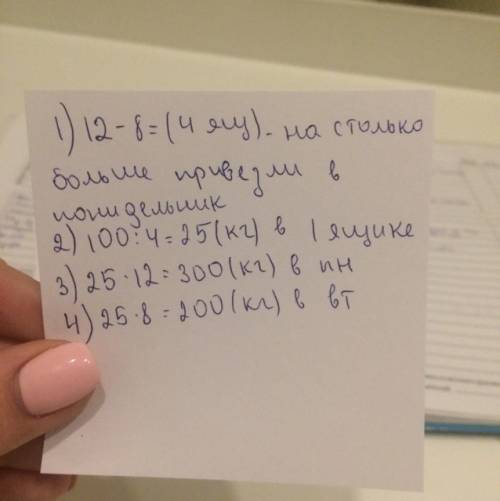 1) 12-8=(4 ящ)- на столько
больше привезли в
понидельник
2) 100:4=25(кг) в 1 ящике
3) 25·12=300(кг) в пн
4) 25·8=200(кг) в вт